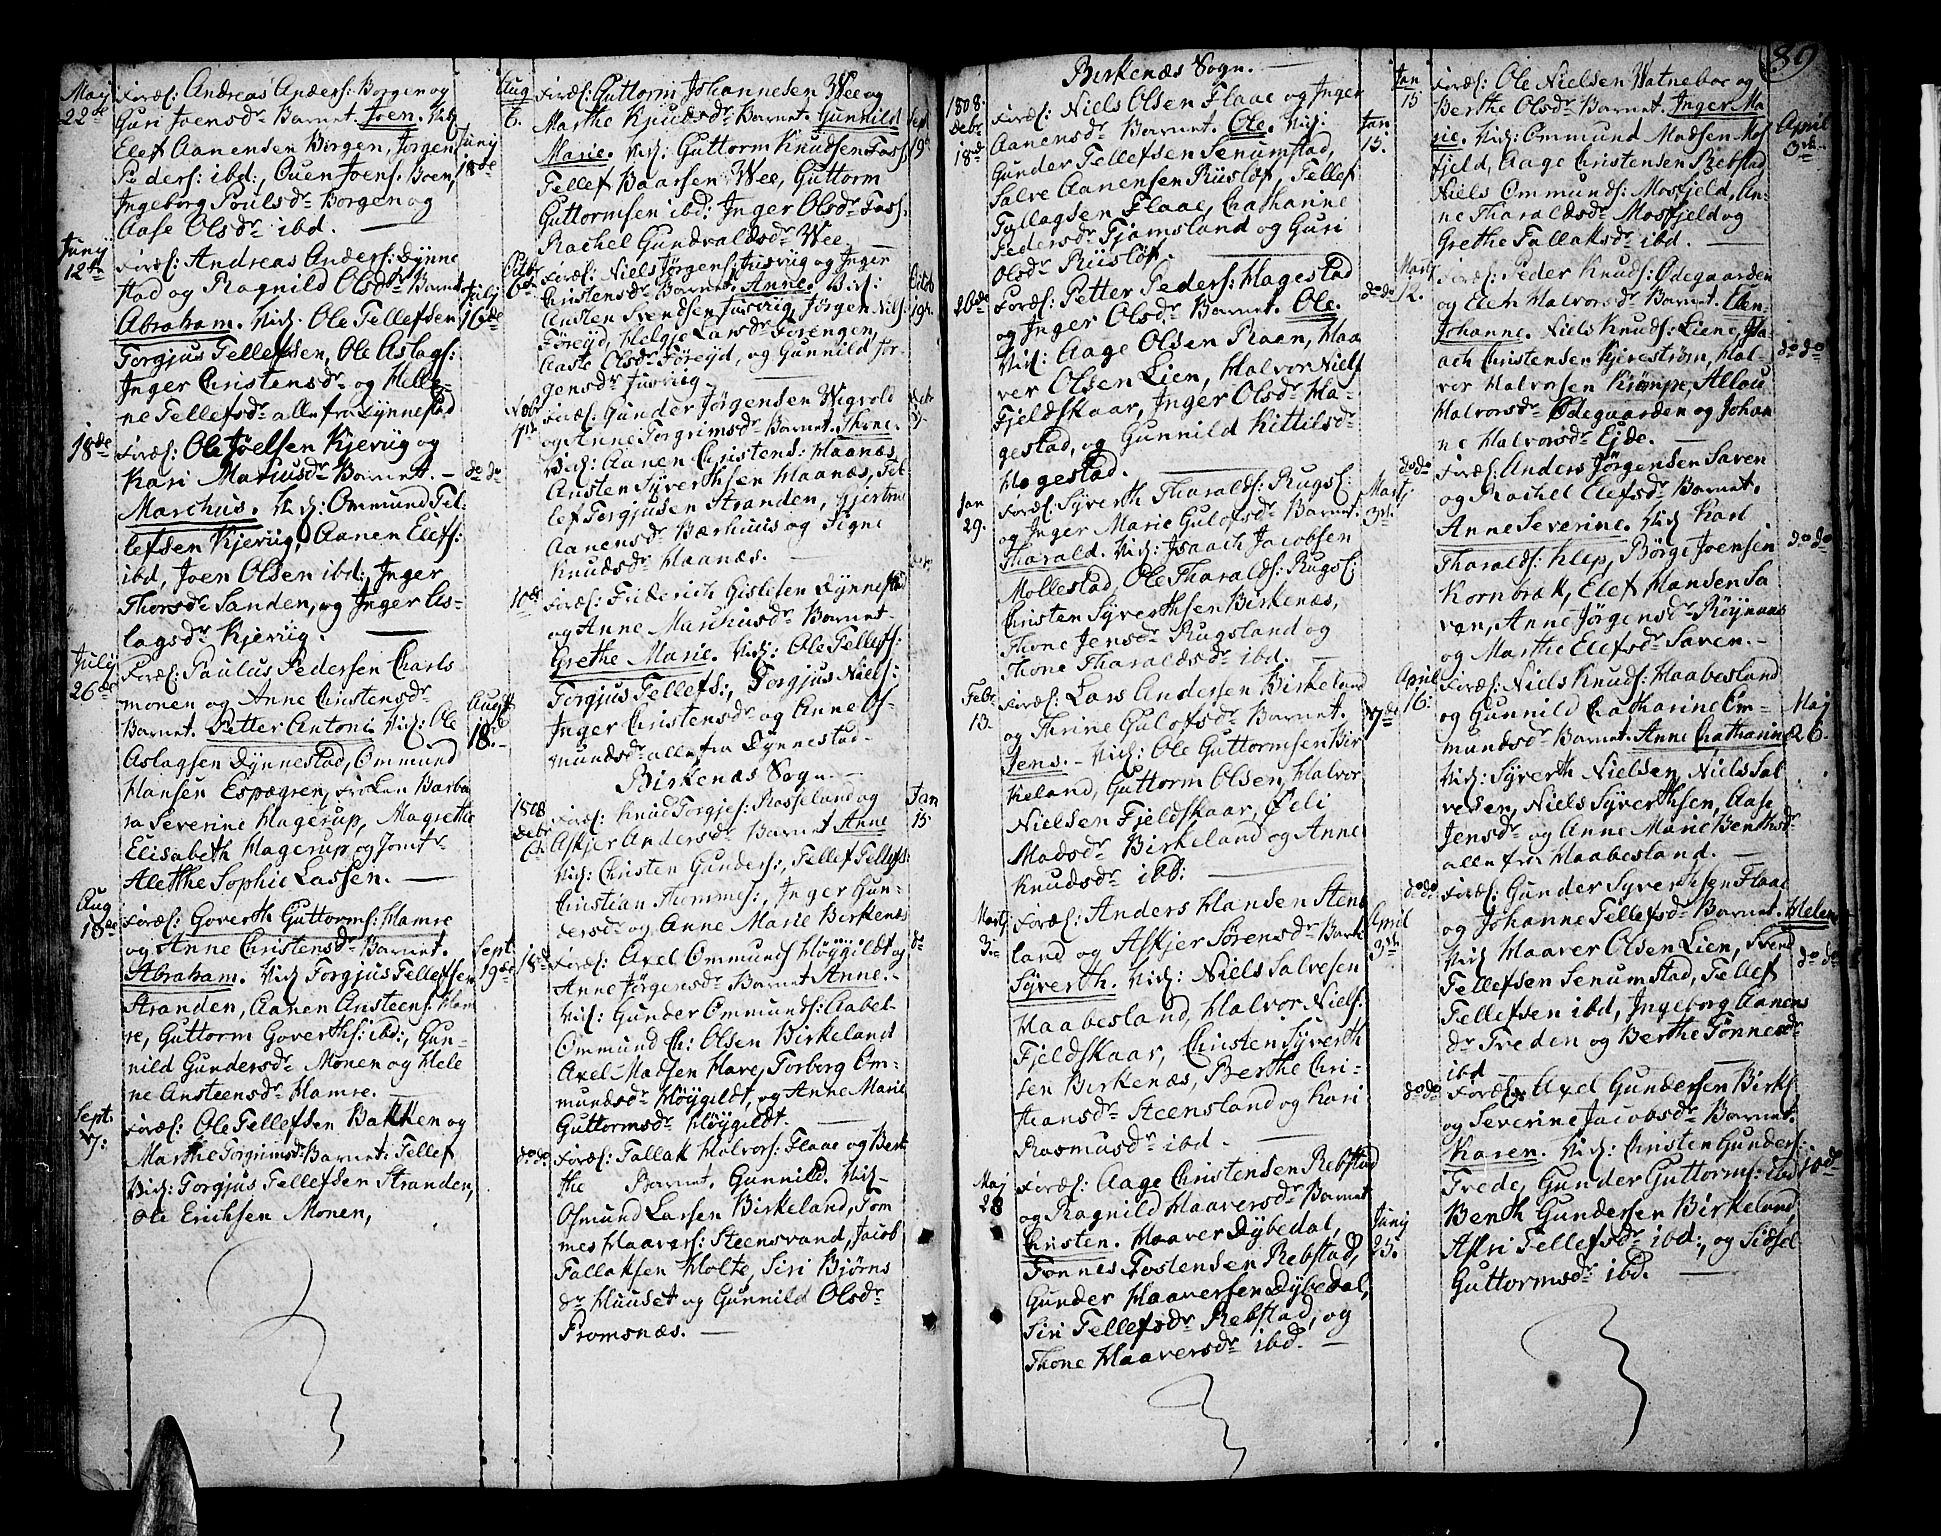 Maij
22de
Foræl: Andreas Anders: Borgen og
Guri Joensdr Barnet Joen. Vid:
Elef Aanensen Birgen, Jørgen
Peders: ibd:, Ouen Joens: Boen,
Ingeborg Poulsdr Borgen og
Aase Olsdr ibd.
Junij
18de
Junij
12te
Foræl: Andreas Anders: Dÿnne
stad og Ragnild Olsdr Barnet
Abraham. Vid: Ole Tellefsen
Torgjus Tellefsen, Ole Aslags:
Inger Christensdr og Helle-
ne Tellefsdr alle fra Dÿnnestad
Julij
16de
18de
Foræl: Ole Joelsen Kjeviig og
Kari Mariusdr Barnet.
Marchus. Vid: Ommund Tel-
lefsen Kjeviig, Aanen Elefs:
ibd, Joen Olsen ibd:, Inger
Thorsdr Sanden, og Inger As-
lagsdr Kjeviig.
do do
Julij
26de
Foræl: Paulus Pedersen Charls
monen og Anne Christensdr
Barnet. Petter Antoni Vid: Ole
Aslagsen Dÿnnestad, Ommund
Hansen Espægren, Froken Barba
ra Severine Hagerup, Magrethe
Elisabeth Hagerup og Jomfr
Alethe Sophie Lassen.
Augst
18de
Aug
18de
Foræl: Goverth Guttorms: Hamre
og Anne Christensdr Barnet.
Abraham. Vid: Torgjus Tellefsen
Stranden, Aanen Ansteens: Ham
re, Guttorm Goverths: ibd:, Gun-
nild Gundersdr Monen og Hele
ne Ansteensdr Hamre.
Sept
19de
Sept.
7:
Foræl: Ole Tellefsen Bakken og
Marthe Torgrimsdr Barnet: Tellef
Vid: Torgjus Tellefsen Stranden,
Ole Erichsen Monen,
Aug
6.
Foræl: Guttorm Johannesen Wee og
Marthe Knudsdr Barnet. Gunnild
Marie. Vid: Guttorm Knudsen Foss
Tellef Baarsen Wee, Guttorm
Guttormsen ibd: Inger Olsdr Foss.
Rachel Gundvaldsdr Wee
Sept
19
Octbr
6de
Foræl: Niels Jørgens: Jusviig og Inger
Christensdr Barnet. Anne. Vid:
Ansten Svendsen Jusviig, Jørgen Niels:
Føreÿd, Helgje Larsdr Førengen,
Aaste Olsdr Føreÿd, og Gunnild Jør-
gensdr Jusviig
Octob
Novbr
7de
Foræl: Gunder Jørgensen Wigvold
og Anne Torgrimsdr Barnet. Thone.
Vid: Aanen Christens: Haanæs,
Ansten Sÿverthsen Haanæs, Tel
lef Torgjusen Stranden, Gjertrue
Aanensdr Bærhuus og Signe
Knudsdr Haanæs.
10de
Foræl: Friderich Gislesen Dÿnnestad
og Anne Marchusdr Barnet.
Grethe Marie. Vid: Ole Tellefs:
Torgjus Tellefs:, Torgjus Niels:
Inger Christensdr og Anne Os-
mundsdr alle fra Dÿnnestad.
Birkenæs Sogn.
1808
Debr
6te
Foræl: Knud Torgjes: Rosseland og
Askjer Andersdr Barnet Anne
Vid: Christen Gunders:, Tellef Tellefs
Christian Thommes:, Inger Gun-
dersdr og Anne Marie Birkenæs
Jan
15
18de
Foræl: Axel Ommunds Høÿgildt og
Anne Jørgensdr Barnet Anne.
Vid: Gunder Ommunds: Aabel
Ommund Ch: Olsen Birkeland
Axel Madsen Have, Torborg Om-
mundsdr Høÿgildt, og Anne Marie
Guttormsdr Høÿgildt.
do
do do
Foræl: Tallak Halvors: Flaae og Bert
the Barnet. Gunnild. Vid-
Osmund Larsen Birkeland, Tom
mes Haavers: Steensvand, Jacob
Tallaksen Holte, Siri Bjørns
dr Huuset og Gunnild Olsdr
Fromsnæs.
89
Birkenæs Sogn.
1808.
Debr
18de
Foræl: Niels Olsen Flaae og Inger
Aanensdr Barnet. Ole. Vid:
Gunder Tellefsen Senumstad,
Salve Aanensen Riisløf, Tellef
Tallagsen Flaae, Chathrine
Pedersdr Tjamsland og Guri
Olsdr Riisløf.
Jan
15.
26de
Foræl: Petter Peders: Hagestad
og Inger Olsdr Barnet. Ole.
Vid: Aage Olsen Raen, Haa
ver Olsen Lien, Halvor Niels
Fjeldskaar, Inger Olsdr Ha-
gestad, og Gunnild Kittilsdr
Hagestad.
do do
Jan
29.
Foræl: Sÿverth Tharalds: Rugsl:
og Inger Marie Gulofsdr Barnet.
Tharald. Vid: Isaach Jacobsen
Mollestad, Ole Tharalds: Rugsl:
Christen Sÿverthsen Birkenæs,
Thone Jensdr Rugsland og
Thone Tharaldsdr ibd.
Martj
3de
Febr
13.
Foræl: Lars Andersen Birkeland
og Thrine Gulofsdr Barnet.
Jens. Vid: Ole Guttormsen Bir
keland, Guttorm Olsen, Halvor
Nielsen Fjeldskaar, Zeli
Madsdr Birkeland og Anne
Knudsdr ibd:
17de
Martj
3.
Foræl: Anders Hansen Stens
land og Askjer Sørensdr Barnet
Sÿverth. Vid: Niels Salvesen
Haabesland, Halvor Niels:
Fjeldskaar, Christen Sÿverth
sen Birkenæs, Berthe Chri-
stiansdr Steensland og Kari
Rasmusdr ibd.
April
3de
Maj
28
Foræl: Aage Christensen Rebstad
og Ragnild Haaversdr Barnet
Christen. Haaver Dÿbedal,
Tønnes Tostensen Rebstad,
Gunder Haaversen Dÿbedal,
Siri Tellefsdr Rebstad, og
Thone Haaversdr ibd.
Junij
25.
Jan
15
Foræl: Ole Nielsen Watneboe og
Berthe Olsdr Barnet. Inger Ma
rie. Vid: Ommund Madsen Mos
fjeld, Aage Christensen Rebstad
Niels Ommunds: Mosfjeld, An-
ne Tharaldsdr Mosfjeld og
Grethe Tallaksdr ibd.
April
3de
Martj
12.
Foræl: Peder Knuds: Ødegaarden
og Elen Halvorsdr Barnet. Elen
Johanne. Niels Knuds: Liene, Isa-
ach Christensen Kjerestrøm, Hal-
vor Halvorsen Krømpe, Allou
Halvorsdr Ødegaarden og Johan
ne Halvorsdr Ejde.
do do
do do
Foræl: Anders Jørgensen Saven
og Rachel Elefsdr Barnet.
Anne Severine. Vid Karl
Tharalds: Klep, Børge Joensen
Kornbrak, Elef Hansen Sa
ven, Anne Jørgensdr Røÿnaas
og Marthe Elefsdr Saven.
do do
April
16.
Foræl: Niels Knuds: Haabesland
og Gunnild Catharine Om-
mundsdr Barnet. Anne Chatharine
Vid: Sÿverth Nielsen, Niels Sal
vesen, Niels Sÿverthsen, Aase
Jensdr og Anne Marie Benthsdr
alle fra Haabesland.
Maj
26.
do do
Foræl: Gunder Sÿverthsen Flaae
og Johanne Tellefsdr Barnet. Helene
Vid Haaver Olsen Lien, Svend
Tellefsen Senumstad, Tellef
Tellefsen ibd, Ingeborg Aanens
dr Treden og Berthe Tønnesdr
ibd
do do
do do
Foræl: Axel Gundersen Birkl:
og Severine Jacobsdr Barnet.
Karen. Vid: Christen Gunders:
Trede, Gunder Guttorms: ibd
Benth Gundersen Birkeland,
Askri Tellefsdr ibd:, og Sidsel
Guttormsdr ibd.
10de